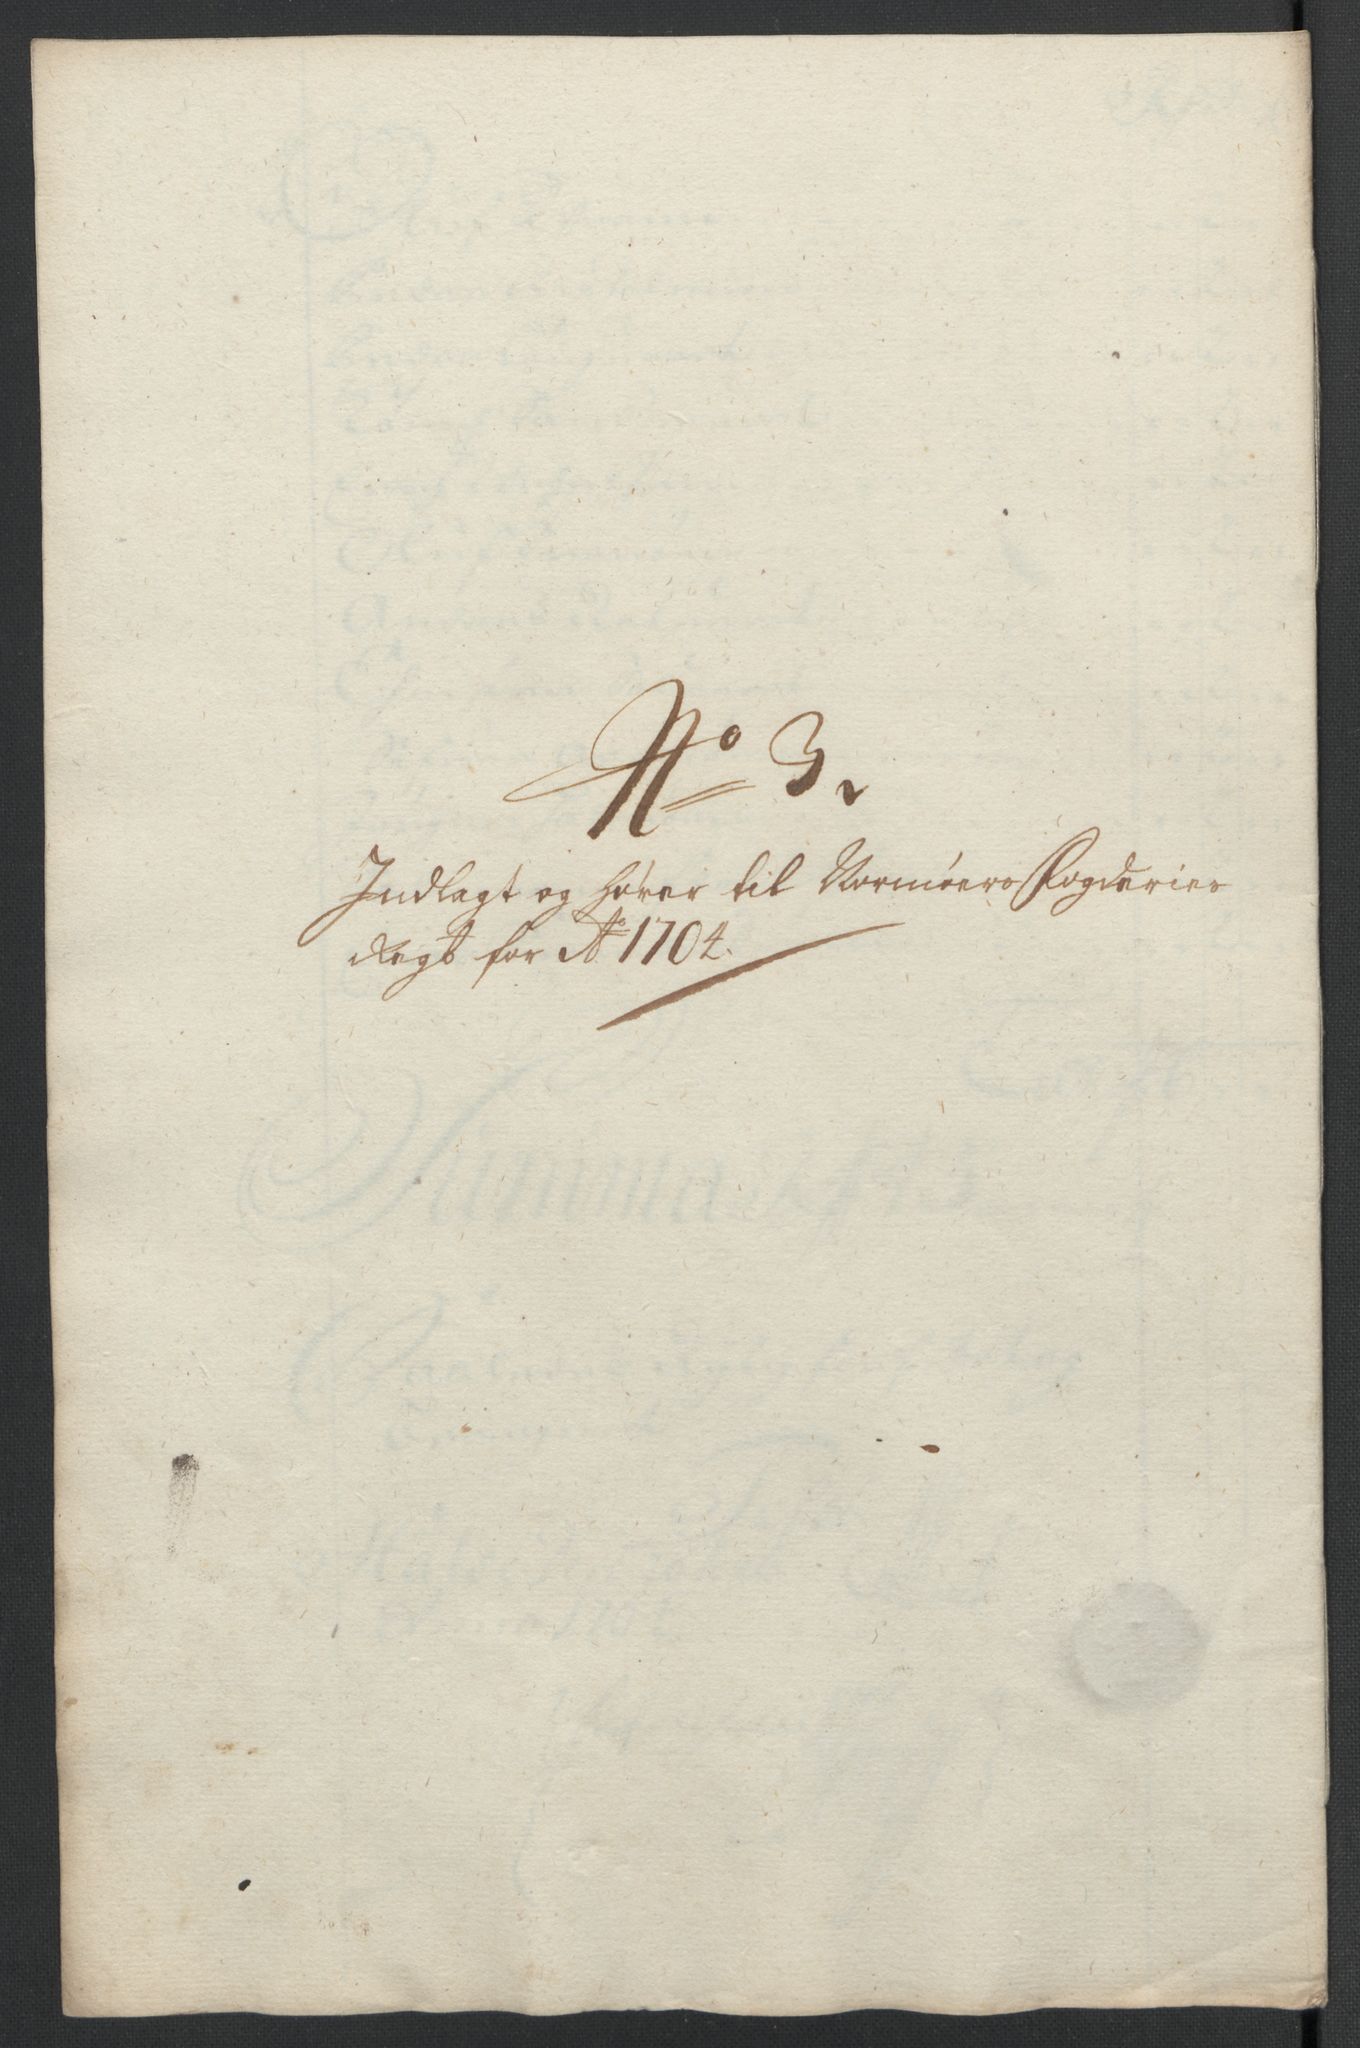 No 3,
Indlagt og hører til Normøers Fogderies
Regb for Ao 1704.